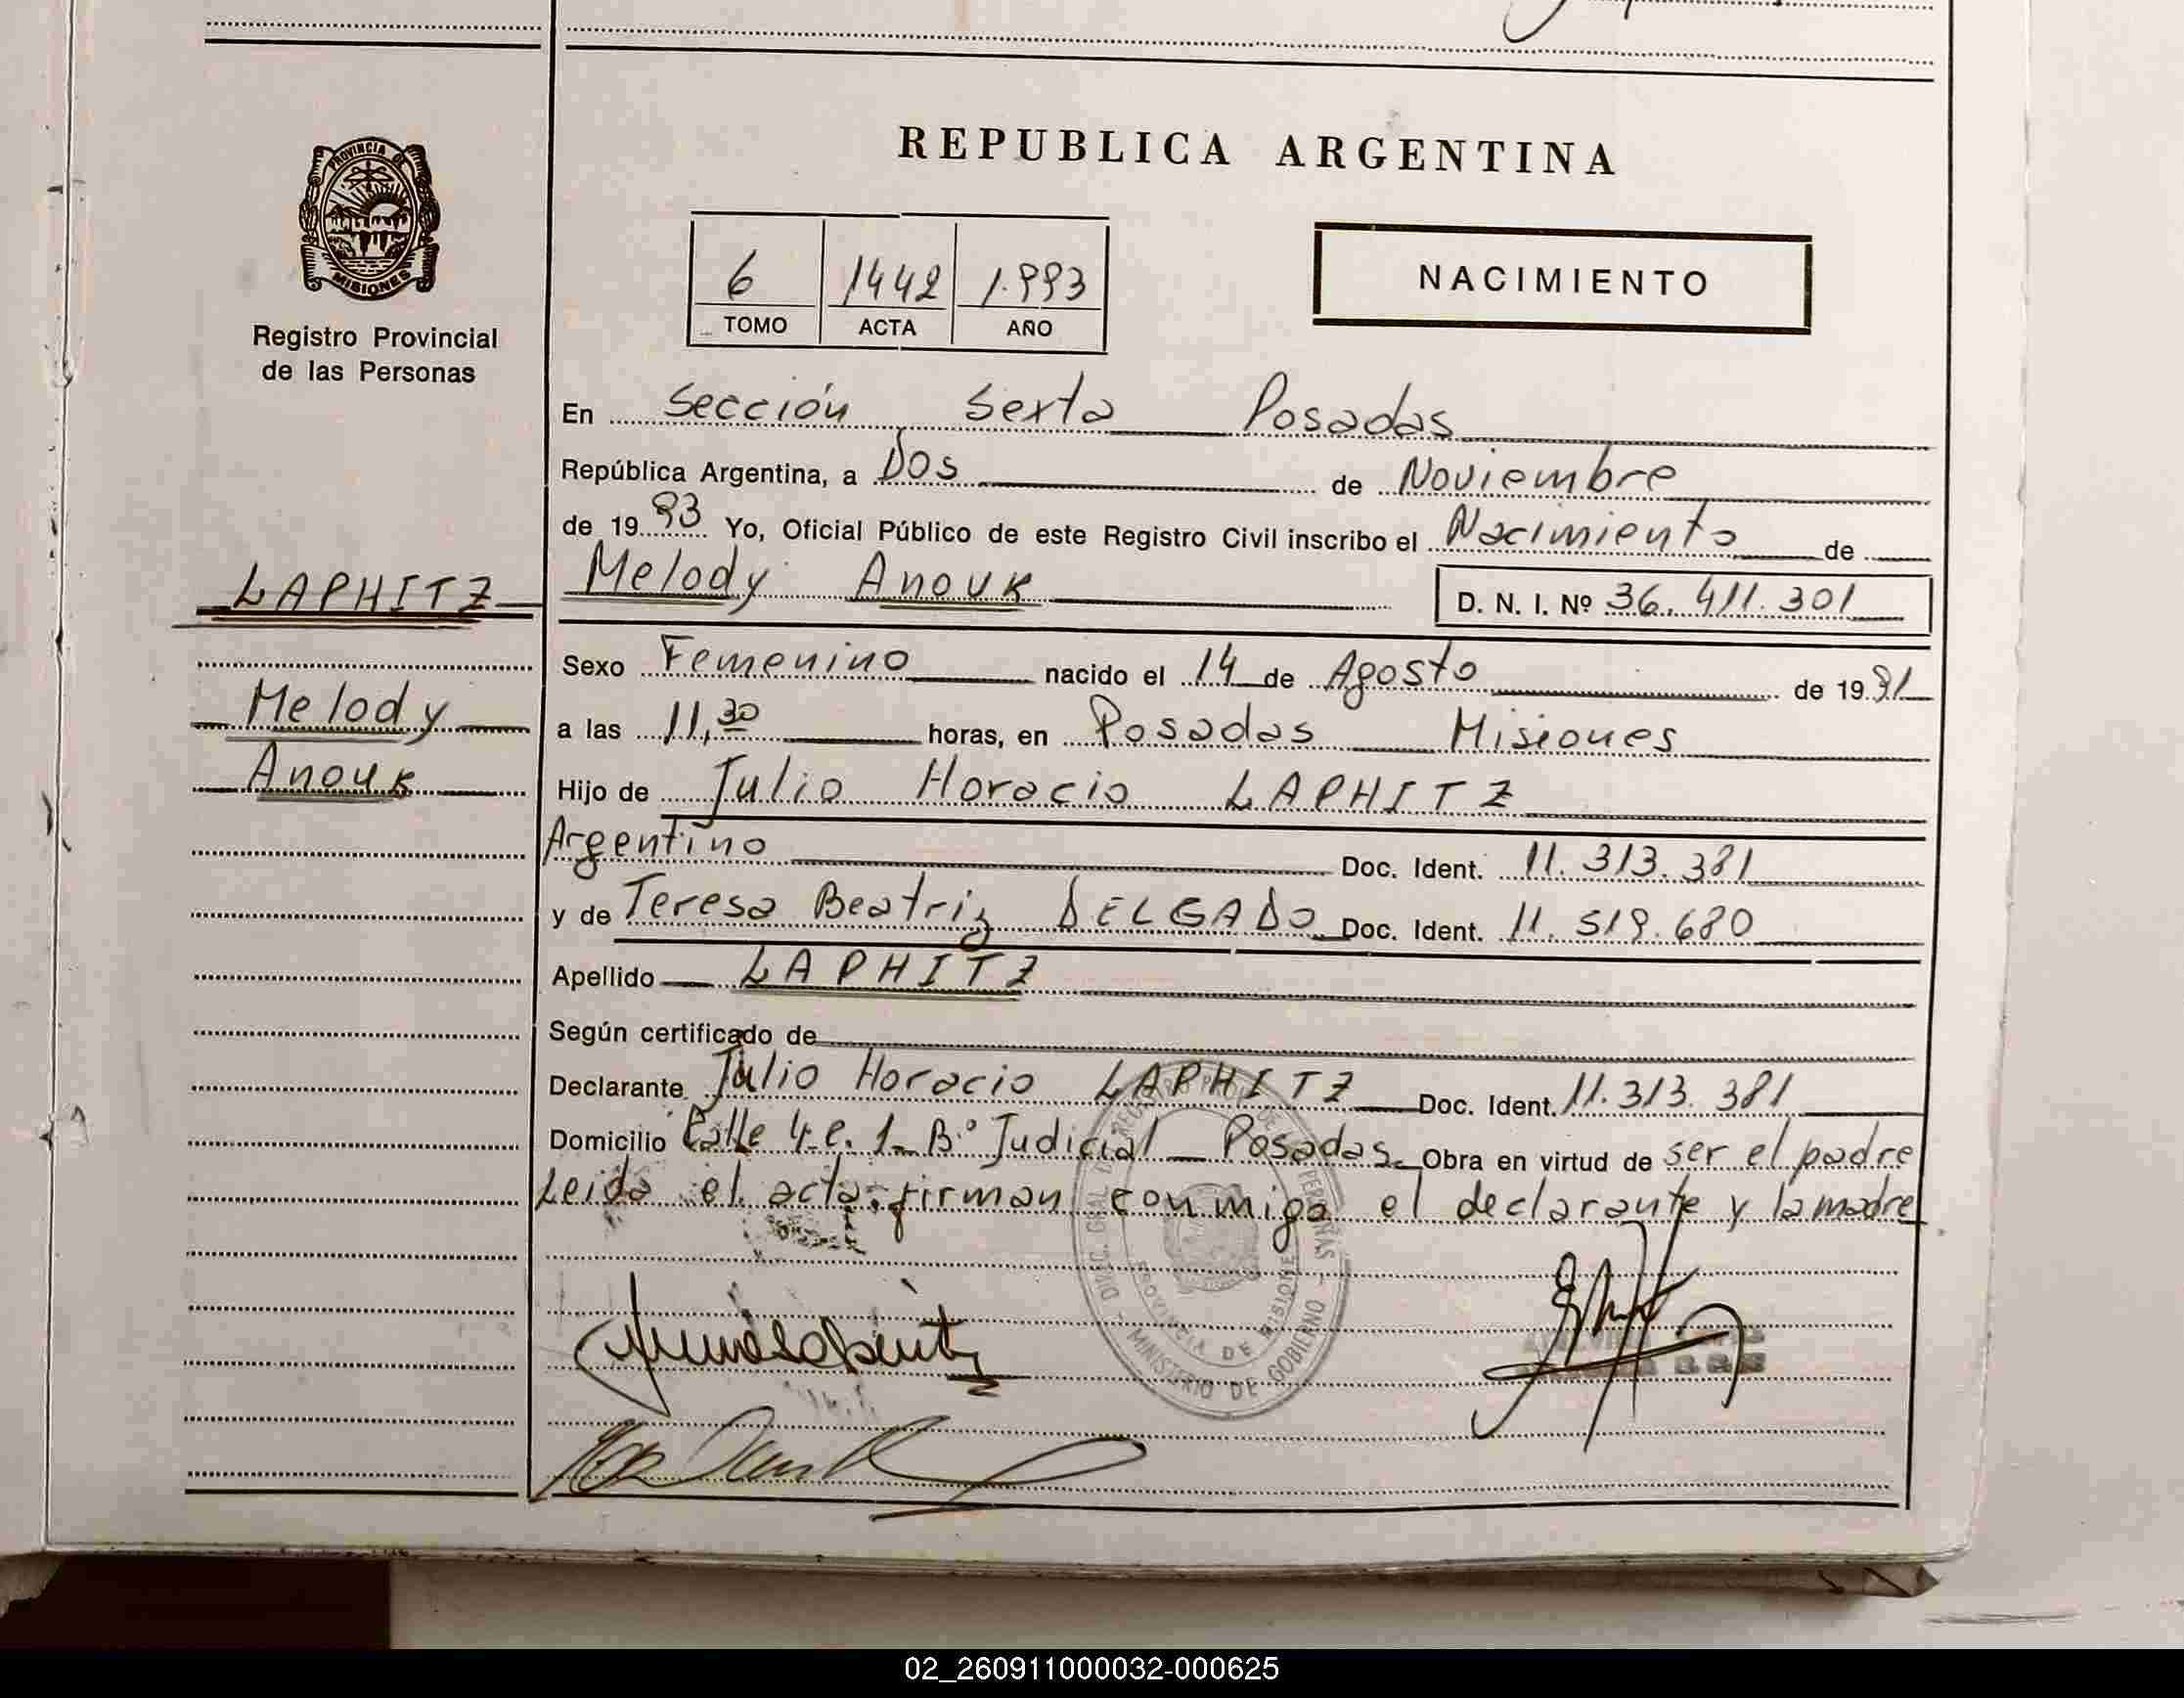 REPUBLICA ARGENTINA
PROVINCIA DE
MISIONES
Registro Provincial
de las Personas
6 1442 1.993
TOMO ACTA AÑO
NACIMIENTO
En Sección Sexta Posadas
República Argentina, a Dos de Noviembre
de 1993 Yo, Oficial Público de este Registro Civil inscribo el Nacimiento de
LAPHITZ
Melody Anouk D. N. I. Nº 36.411.301
Sexo Femenino nacido el 14 de Agosto de 1991
Melody
a las 11,30 horas, en Posadas Misiones
Anouk
Hijo de Julio Horacio LAPHITZ
Argentino Doc. Ident. 11.313.381
y de Teresa Beatriz DELGADO Doc. Ident. 11.519.680
Apellido LAPHITZ
Según certificado de
Declarante Julio Horacio LAPHITZ Doc. Ident. 11.313.381
Domicilio Calle 4 e. 1 - Bº Judicial - Posadas - Obra en virtud de ser el padre
Leida el acta firman conmigo el declarante y la madre
PROVINCIA DE MISIONES
MINISTERIO DE GOBIERNO
02_260911000032-000625